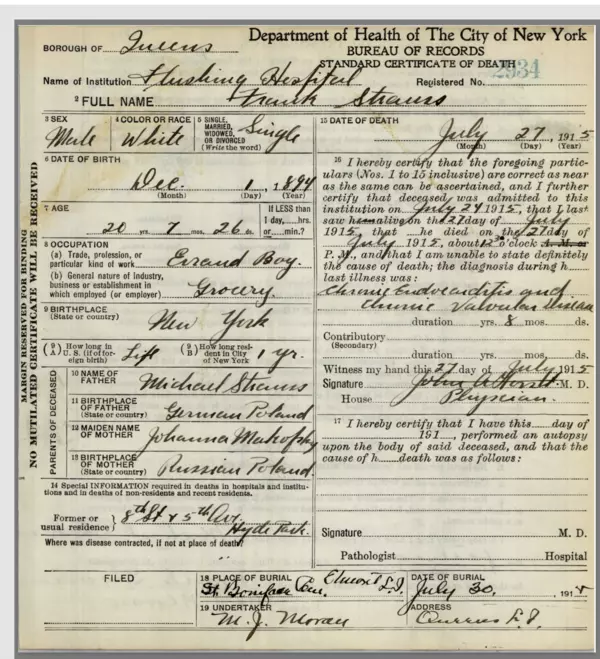 Department of Health of The City of New York
BOROUGH OF Queens
BUREAU OF RECORDS
STANDARD CERTIFICATE OF DEATH
2934
Name of Institution Flushing Hospital
Registered No.
2 FULL NAME Frank Strauss
3 SEX
Male
4 COLOR OR RACE
White
5 SINGLE,
MARRIED,
WIDOWED,
OR DIVORCED
(Write the word)
Single
6 DATE OF BIRTH
Dec. 1, 1894
(Month) (Day) (Year)
7 AGE
20 yrs. 7 mos. 26 ds.
If LESS than
1 day, hrs.
or min.?
8 OCCUPATION
(a) Trade, profession, or
particular kind of work Errand Boy.
(b) General nature of industry,
business or establishment in
which employed (or employer) Grocery.
9 BIRTHPLACE
(State or country)
New York
(9 A) How long in
U. S. (if of for-
eign birth)
Life
(9 B) How long resi-
dent in City
of New York
1 yr.
PARENTS OF DECEASED
10 NAME OF
FATHER
Michael Strauss
11 BIRTHPLACE
OF FATHER
(State or country)
German Poland
12 MAIDEN NAME
OF MOTHER
Johanna
13 BIRTHPLACE
OF MOTHER
(State or country)
Russian Poland
14 Special INFORMATION required in deaths in hospitals and institu-
tions and in deaths of non-residents and recent residents.
Former or
usual residence
8th St & 5th Ave.
Hyde Park.
Where was disease contracted, if not at place of death?
MARGIN RESERVED FOR BINDING
NO MUTILATED CERTIFICATE WILL BE RECEIVED
15 DATE OF DEATH
July 27, 1915
(Month) (Day) (Year)
16 I hereby certify that the foregoing partic-
ulars (Nos. 1 to 15 inclusive) are correct as near
as the same can be ascertained, and I further
certify that deceased was admitted to this
institution on July 24 1915, that I last
saw him alive on the 27 day of July
1915, that he died on the 27 day of
July 1915, about 12 o'clock A. M. or
P. M., and that I am unable to state definitely
the cause of death; the diagnosis during h
last illness was:
Chronic Endocarditis and
Chronic Valvular Disease
duration yrs. 8 mos. ds.
Contributory
(Secondary)
duration yrs. mos. ds.
Witness my hand this 27 day of July 1915
Signature John M. D.
House Physician.
17 I hereby certify that I have this day of
191 , performed an autopsy
upon the body of said deceased, and that the
cause of h death was as follows:
Signature M. D.
Pathologist Hospital
FILED
18 PLACE OF BURIAL
St. Boniface Cem. Elmont L.I.
DATE OF BURIAL
July 30, 1915
19 UNDERTAKER
M. J. Moran
ADDRESS
Queens L.I.